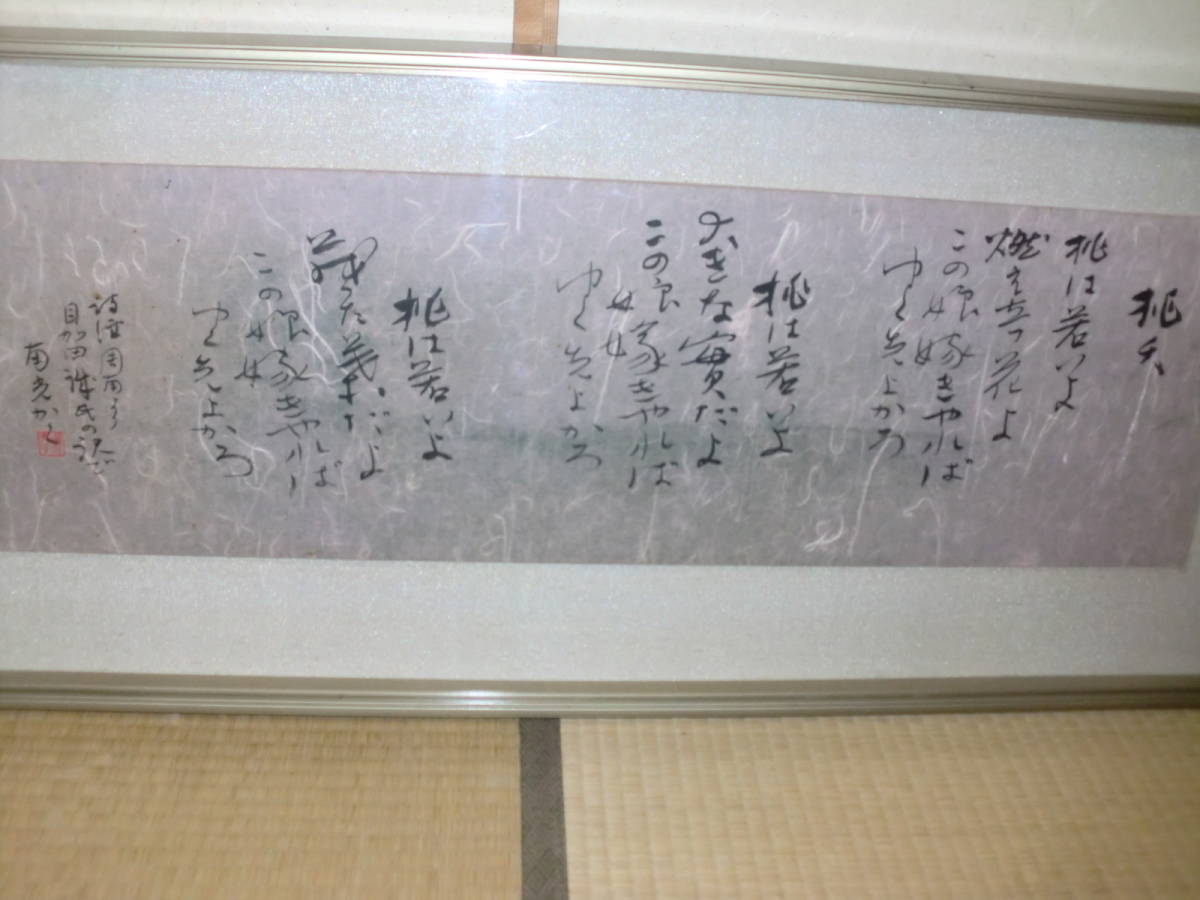 桃夭
桃は若いよ
燃え立つ花よ
この娘嫁きやれば
ゆく先よかろ
桃は若いよ
大きな實だよ
この娘嫁きやれば
ゆく先よかろ
桃は若いよ
茂った葉だよ
この娘嫁きやれば
ゆく先よかろ
詩経周南より
目加田誠氏の訳
南光かく